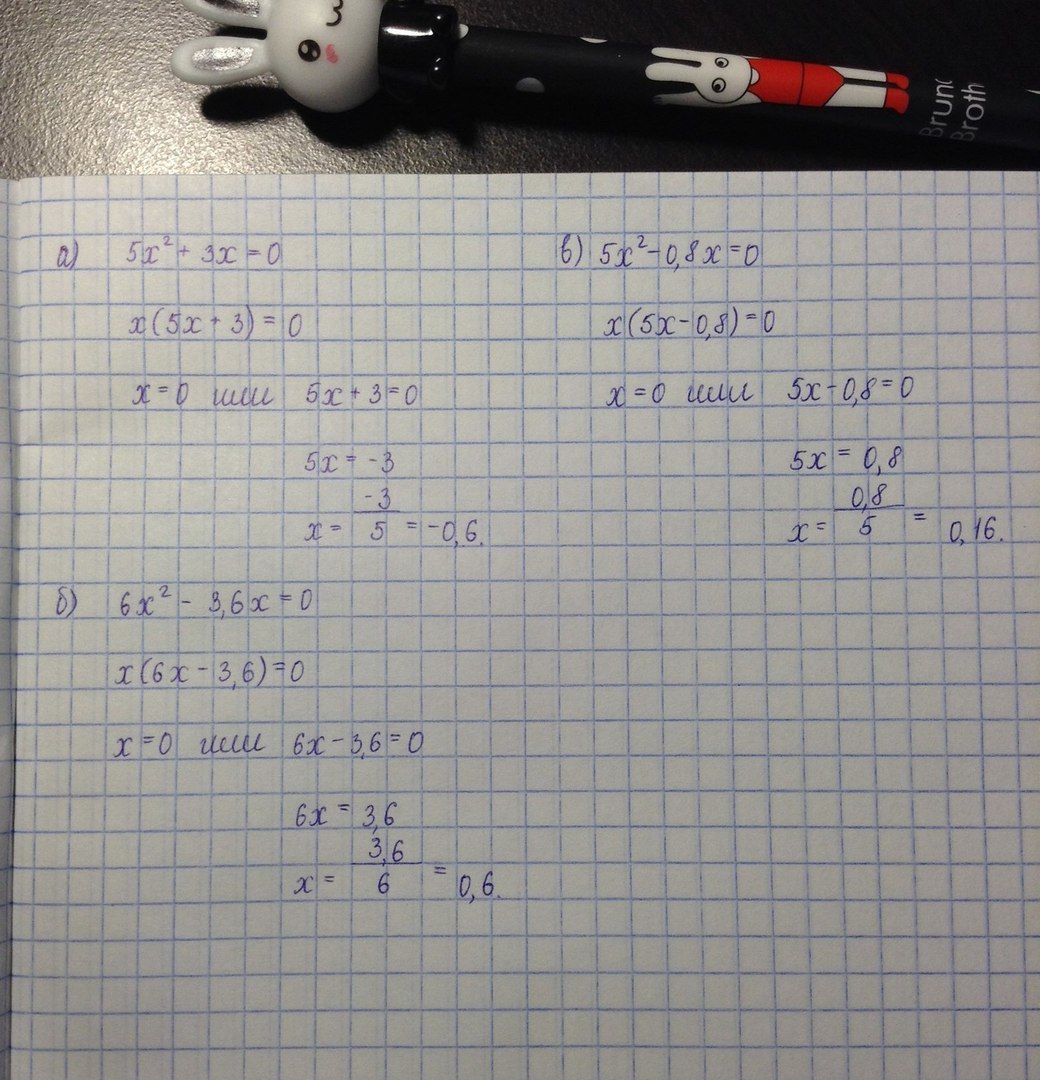 Brun
Broth
а) 5x² + 3x = 0
x(5x + 3) = 0
x = 0 или 5x + 3 = 0
5x = -3
x = -3/5 = -0,6.
б) 6x² - 3,6x = 0
x(6x - 3,6) = 0
x = 0 или 6x - 3,6 = 0
6x = 3,6
x = 3,6/6 = 0,6.
в) 5x² - 0,8x = 0
x(5x - 0,8) = 0
x = 0 или 5x - 0,8 = 0
5x = 0,8
x = 0,8/5 = 0,16.